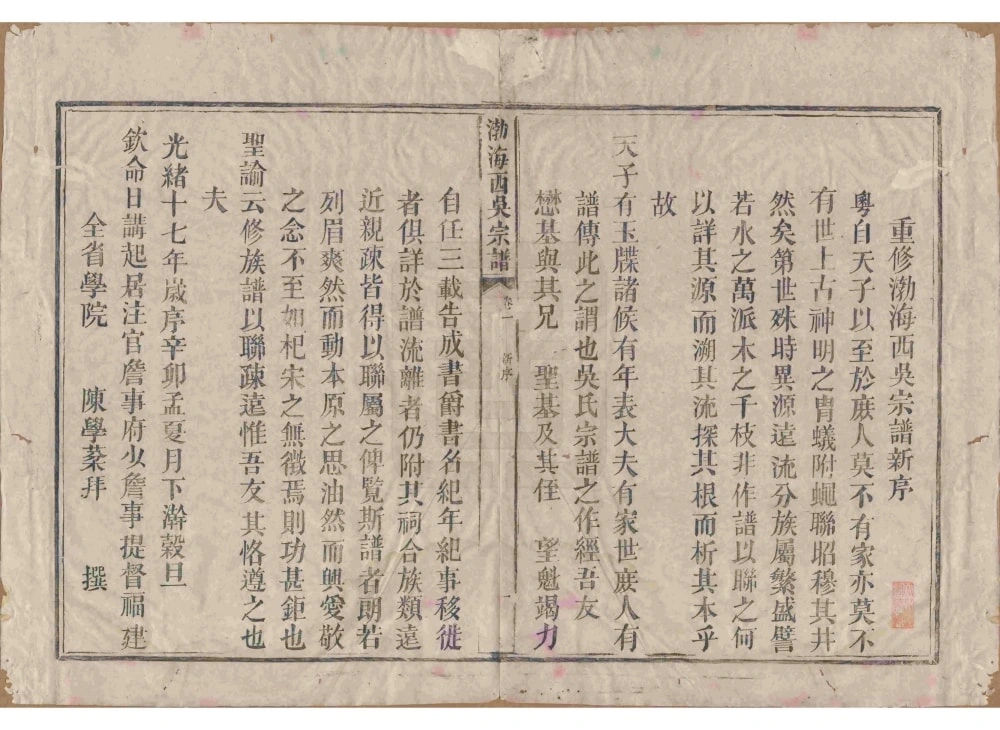 重修渤海西吳宗譜新序
粵自天子以至於庶人莫不有家亦莫不
有世上古神明之胄蟻附蠅聯昭穆其井
然矣第世殊時異源遠流分族屬繁盛譬
若水之萬派木之千枝非作譜以聯之何
以詳其源而溯其流探其根而析其本乎
故
天子有玉牒諸侯有年表大夫有家世庶人有
譜傳此之謂也吳氏宗譜之作經吾友
懋基與其兄 聖基及其侄 望魁竭力
渤海西吳宗譜 卷一 新序 一
自任三載告成書爵書名紀年紀事移徙
者俱詳於譜流離者仍附其祠合族類遠
近親疎皆得以聯屬之俾覽斯譜者朗若
列眉爽然而動本原之思油然而興愛敬
之念不至如杞宋之無徵焉則功甚鉅也
聖諭云修族譜以聯疎遠惟吾友其恪遵之也
夫
光緒十七年歲序辛卯孟夏月下澣穀旦
欽命日講起居注官詹事府少詹事提督福建
全省學院 陳學棻拜 撰